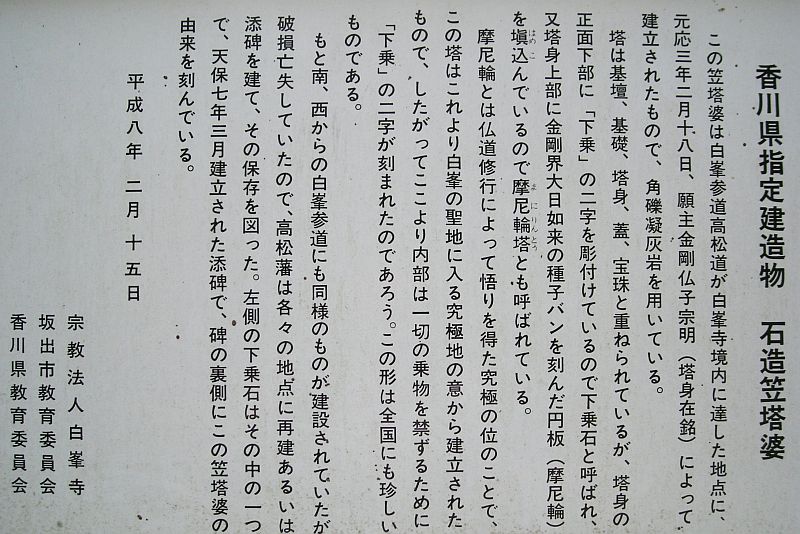 香川県指定建造物　石造笠塔婆
この笠塔婆は白峯参道高松道が白峯寺境内に達した地点に、
元応三年二月十八日、願主金剛仏子宗明（塔身在銘）によって
建立されたもので、角礫凝灰岩を用いている。
塔は基壇、基礎、塔身、蓋、宝珠と重ねられているが、塔身の
正面下部に「下乗」の二字を彫付けているので下乗石と呼ばれ、
又塔身上部に金剛界大日如来の種子バンを刻んだ円板（摩尼輪）
を塡込んでいるので摩尼輪塔とも呼ばれている。
はめこ
まにりんとう
摩尼輪とは仏道修行によって悟りを得た究極の位のことで、
この塔はこれより白峯の聖地に入る究極地の意から建立された
もので、したがってここより内部は一切の乗物を禁ずるために
「下乗」の二字が刻まれたのであろう。この形は全国にも珍しい
ものである。
もと南、西からの白峯参道にも同様のものが建設されていたが
破損亡失していたので、高松藩は各々の地点に再建あるいは
添碑を建て、その保存を図った。左側の下乗石はその中の一つ
で、天保七年三月建立された添碑で、碑の裏側にこの笠塔婆の
由来を刻んでいる。
平成八年　二月　十五日
宗教法人白峯寺
坂出市教育委員会
香川県教育委員会